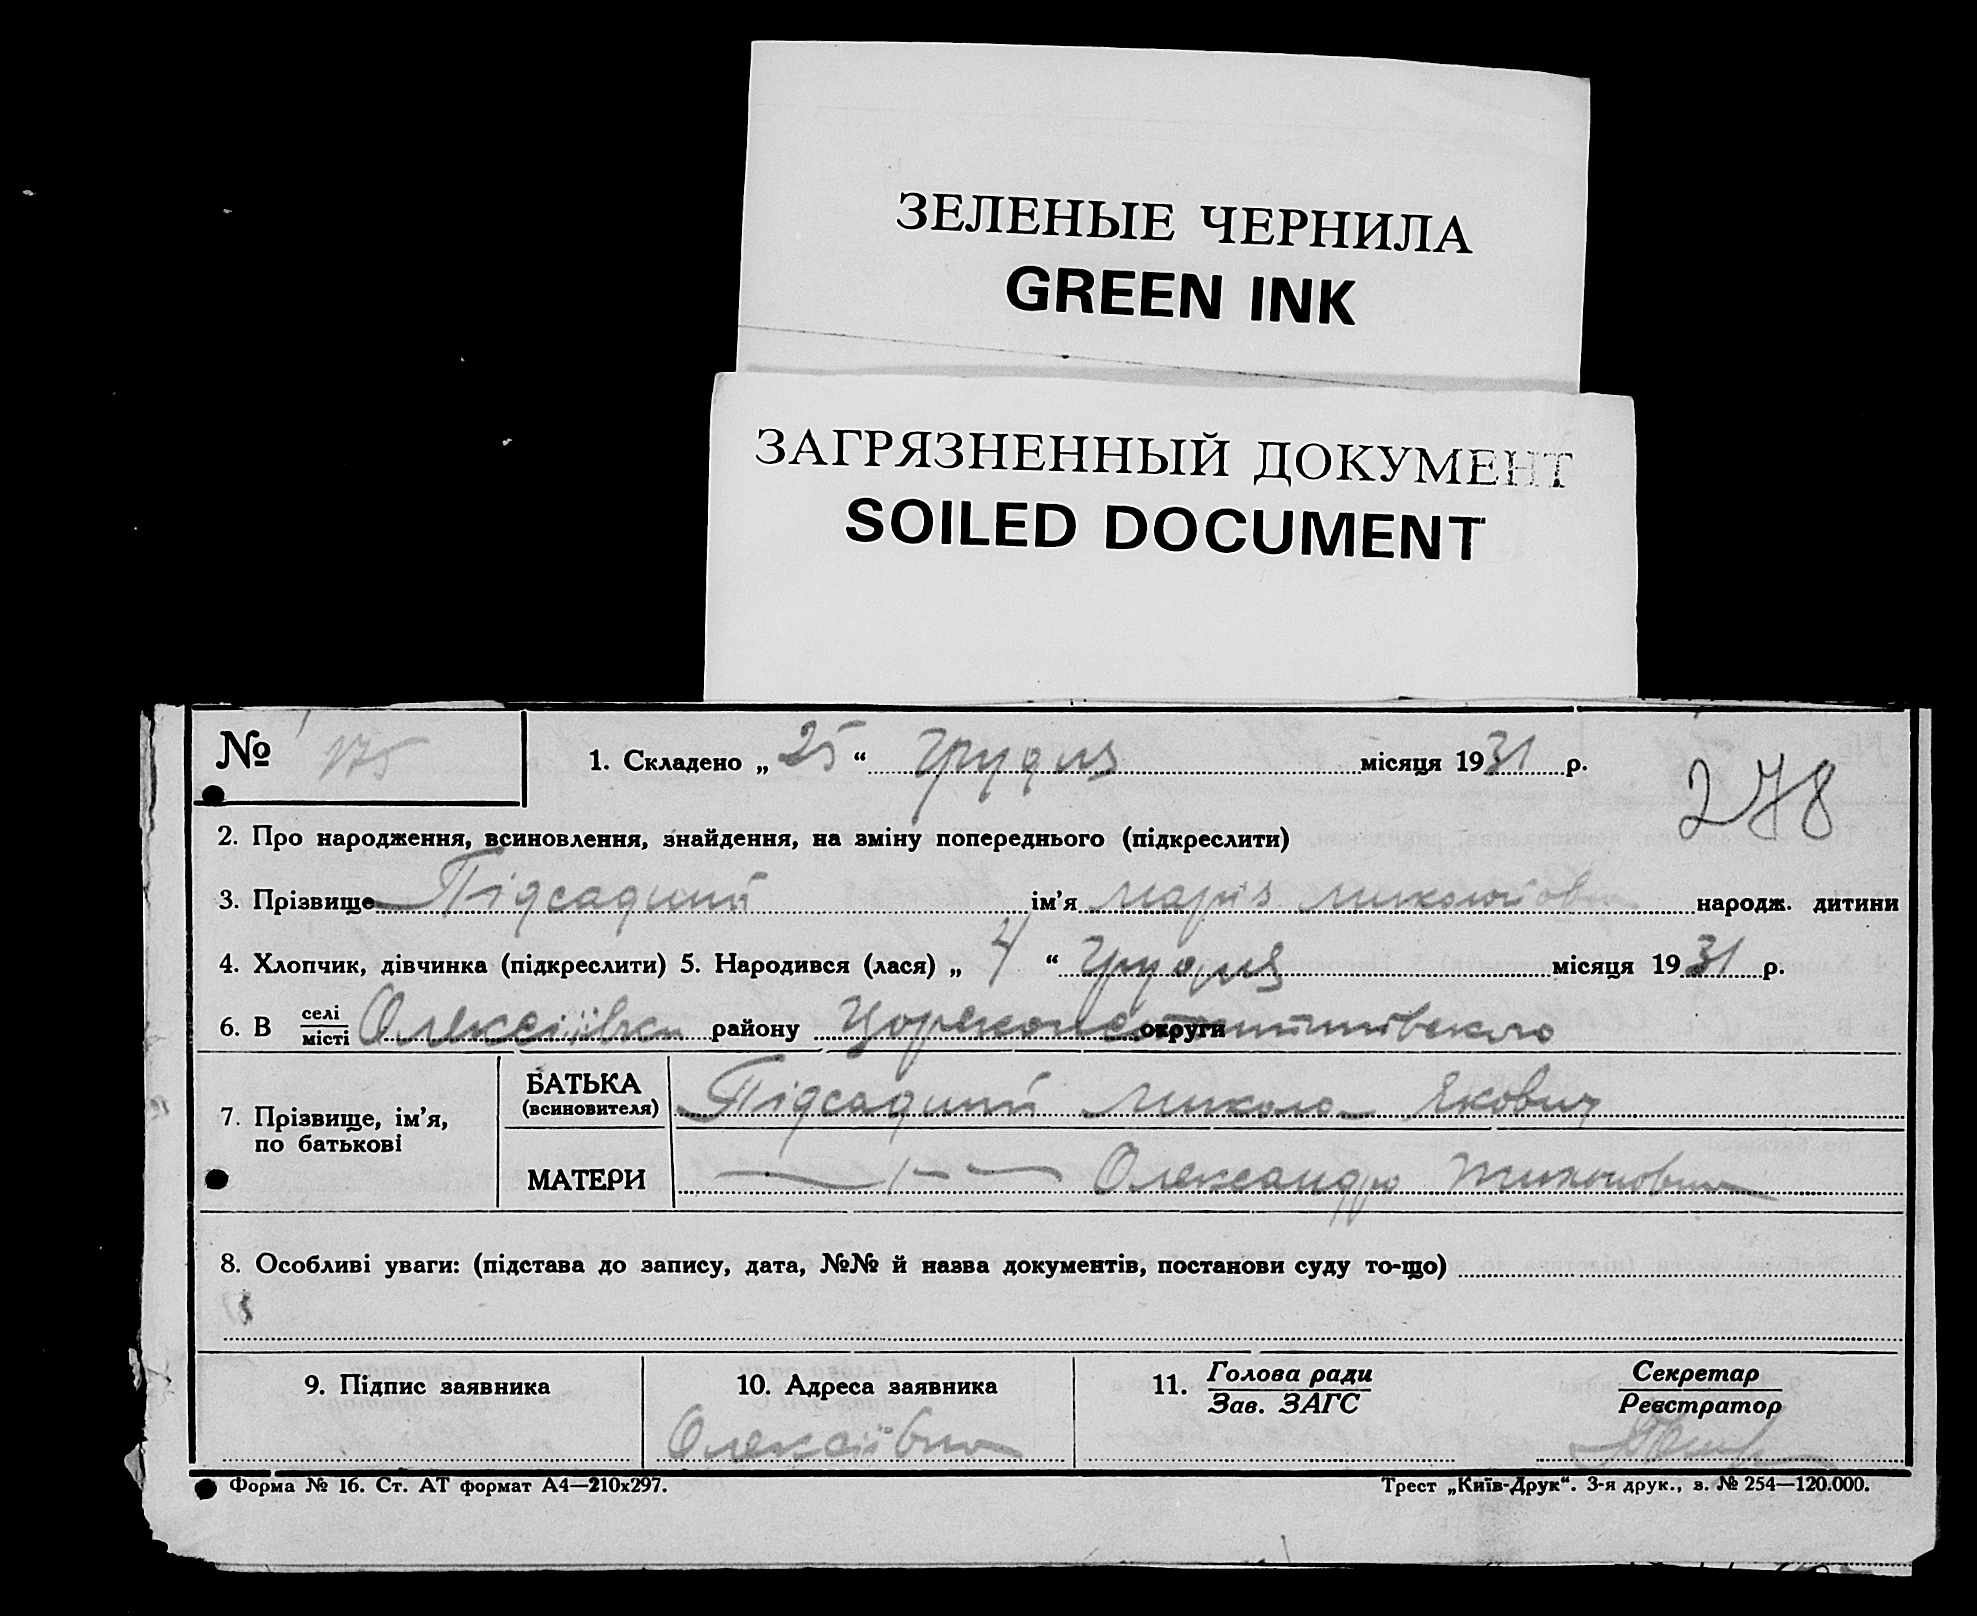 ЗЕЛЕНЫЕ ЧЕРНИЛА
GREEN INK
ЗАГРЯЗНЕННЫЙ ДОКУМЕНТ
SOILED DOCUMENT
№ 175 1. Складено „ 25 “ Грудня місяця 1931 р. 278
2. Про народження, всиновлення, знайдення, на зміну попереднього (підкреслити)
3. Прізвище Підсадний ім’я Марія Миколаївн народж. дитини
4. Хлопчик, дівчинка (підкреслити) 5. Народився (лася) „ 4 “ Грудня місяця 1931 р.
6. В селі/місті Олексіївки району округи
7. Прізвище, ім’я, по батькові
БАТЬКА (всиновителя) Підсадний Микола Якович
МАТЕРИ —〃— Олександра Тихоновна
8. Особливі уваги: (підстава до запису, дата, №№ й назва документів, постанови суду то-що)
9. Підпис заявника 10. Адреса заявника 11. Голова ради/Зав. ЗАГС Секретар/Реєстратор
Олексіївка
Форма № 16. Ст. АТ формат А4—210х297. Трест „Київ-Друк“. 3-я друк., з. № 254—120.000.